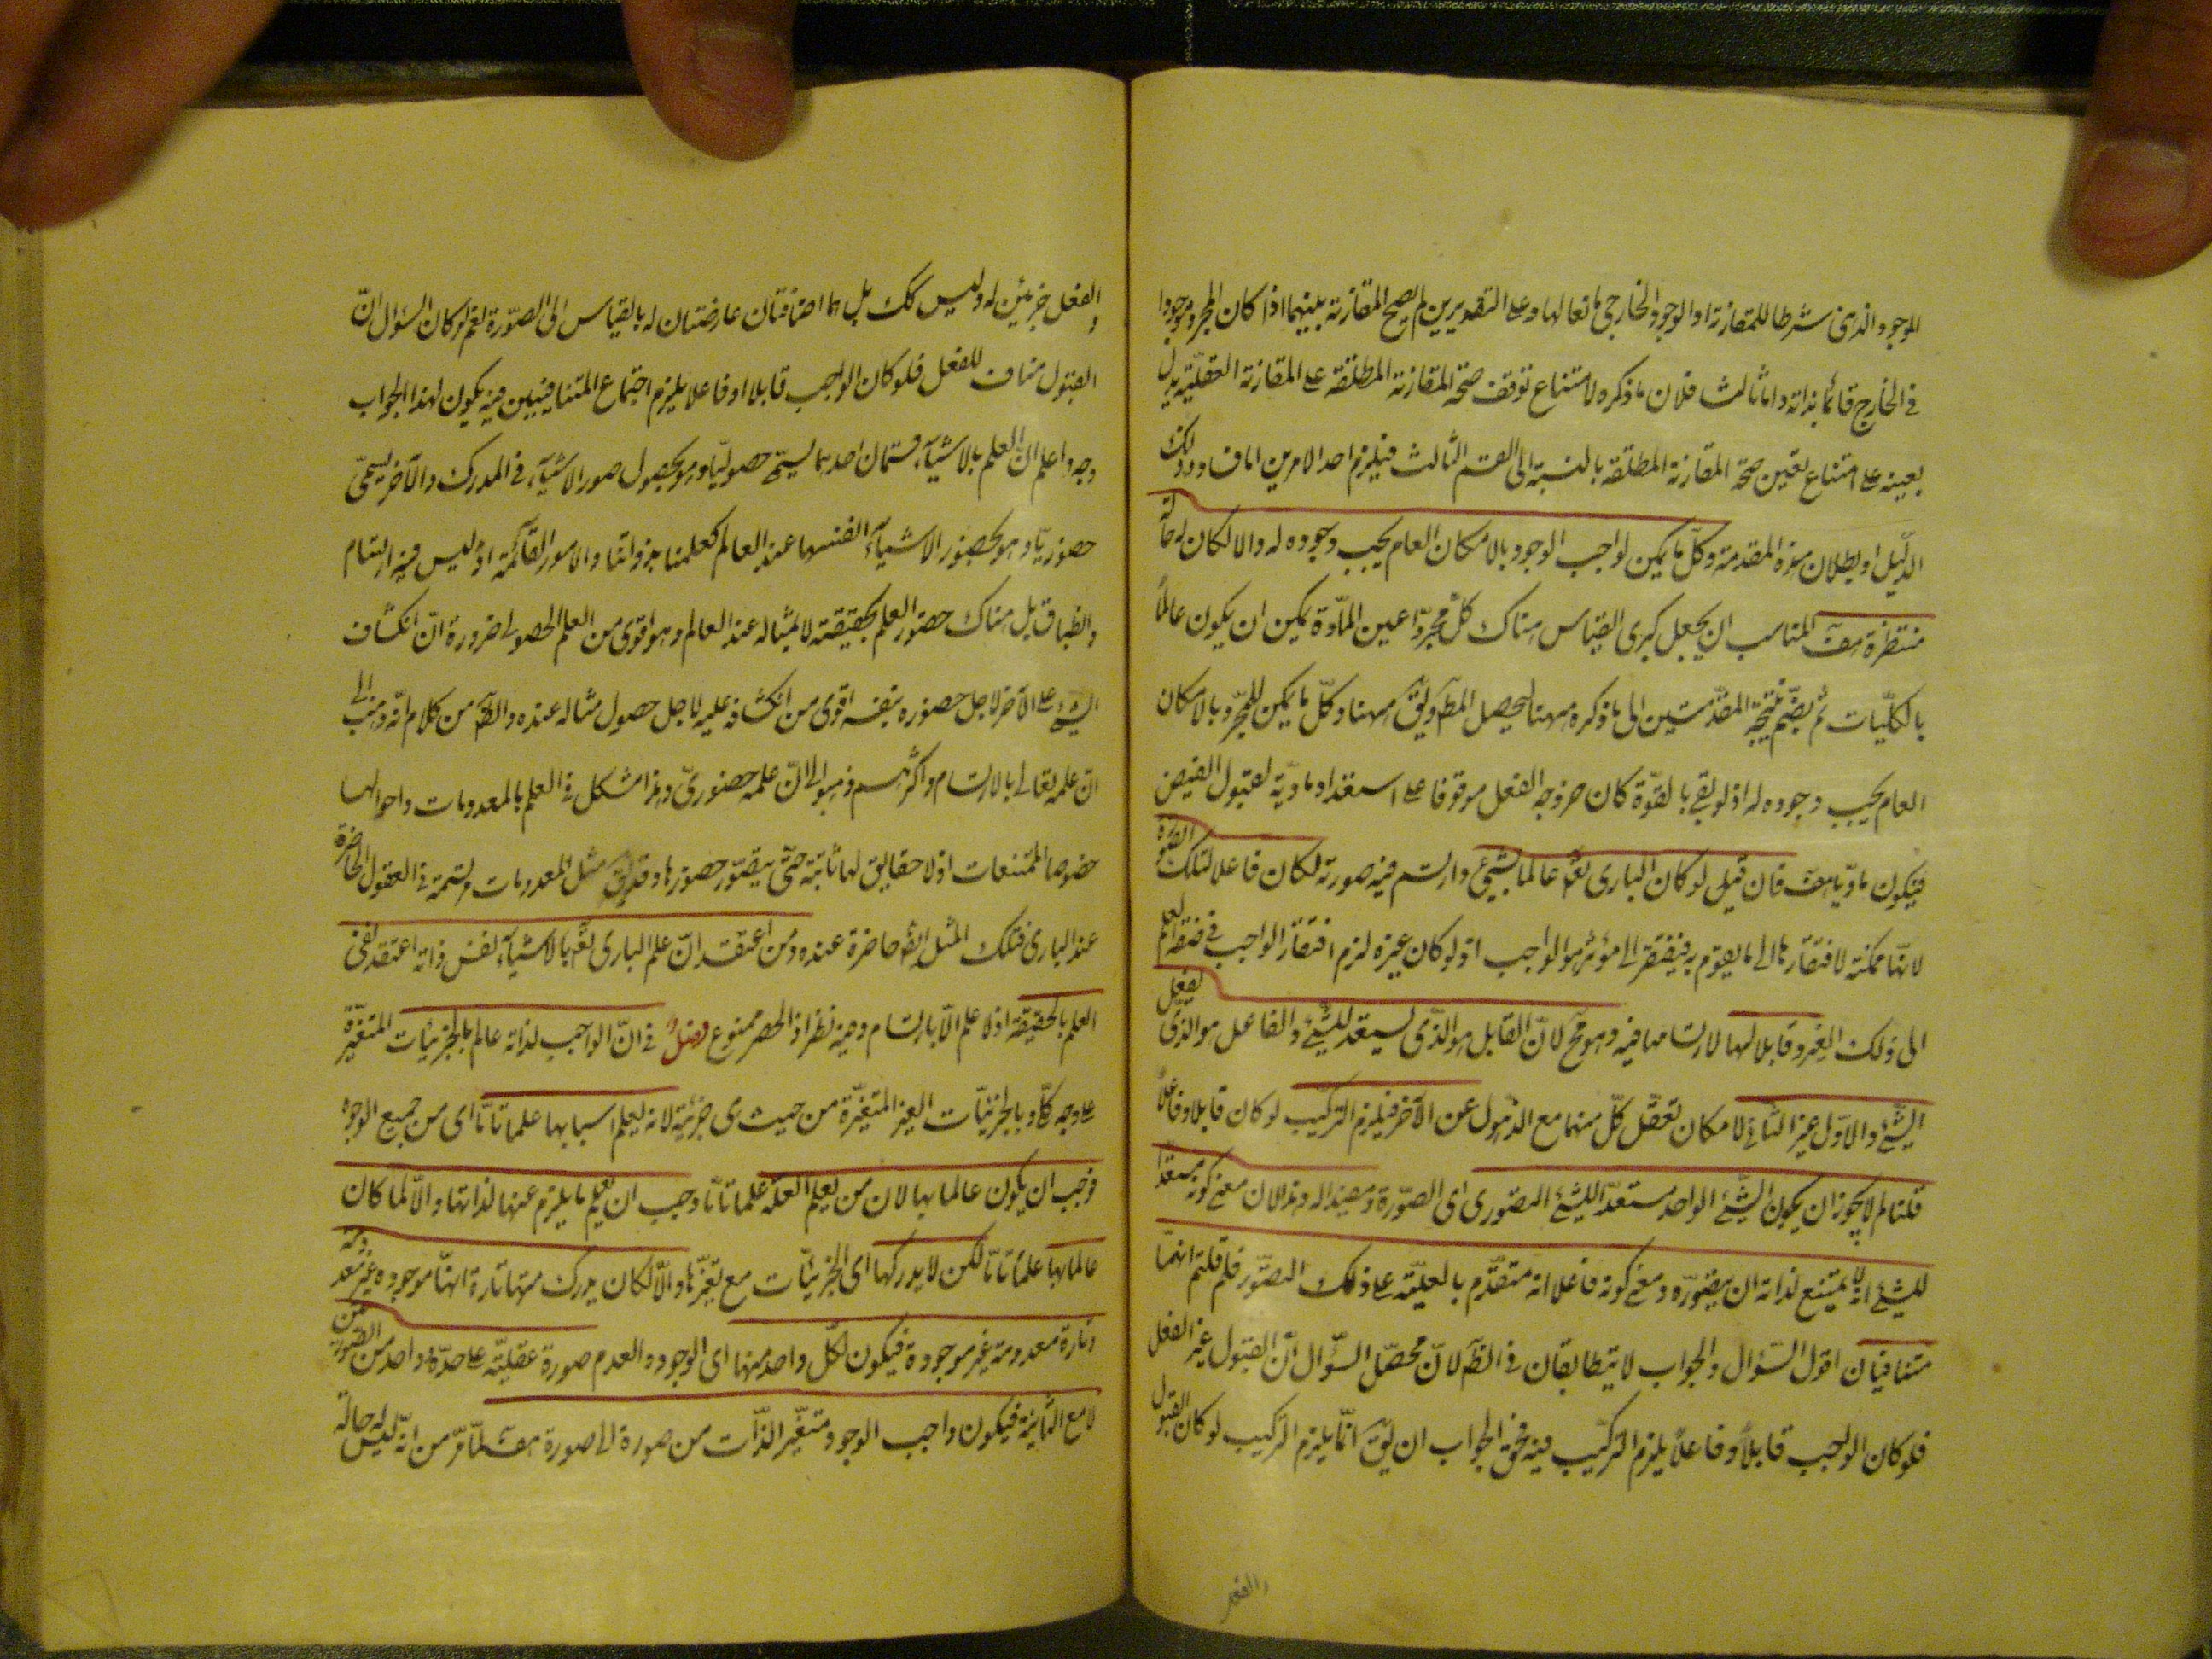 الموجود الذهنى شرطا للمقارنة او الوجود الخارجى مانعا لها وعلى التقديرين لم يصح المقارنة بينهما اذا كان المجرد موجودا
فى الخارج قائما بذاته واما ثالثا فلان ما ذكره لامتناع توقف صحة المقارنة المطلقة على المقارنة العقلية يدل
بعينه على امتناع تعين صحة المقارنة المطلقة بالنسبة الى القسم الثالث فيلزم احد الامرين اما فساد ذلك
الدليل او بطلان هذه المقدمة وكل ما يمكن لواجب الوجود بالامكان العام يجب وجوده له والا لكان له حالة
منتظرة هف المناسب ان يجعل كبرى القياس هناك كل مجرد عن المادة يمكن ان يكون عالما
بالكليات ثم يضم نتيجة المقدمتين الى ما ذكره ههنا ليحصل المط ويق ههنا وكل ما يمكن للمجرد بالامكان
العام يجب وجوده له اذ لو بقى بالقوة كان خروجه الفعل موقوفا على استعداد مادية لقبول الفيض
فيكون ماديا هف فان قيل لو كان البارى تعم عالما بشئ وارتسم فيه صورته لكان فاعلا لتلك الصورة
لانها ممكنة لافتقارها الى ما يقوم به فيفتقر الى مؤثر هو الواجب اذ لو كان غيره لزم افتقار الواجب فى صفة العلم
الى ذلك الغير وقابلا لها لارتسامها فيه وهو مح لان القابل هو الذى يستعد للشئ والفاعل هو الذى يفعل
الشئ والاول غير الثانى لامكان تعقل كل منهما مع الذهول عن الآخر فيلزم التركيب لو كان قابلا وفاعلا
قلنا لم لا يجوز ان يكون الشئ الواحد مستعدا للشئ التصورى اى الصورة ومفيدا له وهذا لان معنى كونه مستعدا
للشئ انه لا يمتنع لذاته ان يتصوره ومعنى كونه فاعلا انه متقدم بالعلية على ذلك التصور فلم قلتم انهما
متنافيان اقول السؤال والجواب لا يتطابقان فى الظ لان محصل السؤال ان القبول غير الفعل
فلو كان الواجب قابلا وفاعلا يلزم التركيب فيه فحق الجواب ان يق انما يلزم التركيب لو كان القبول
والفعل
والفعل جزئين له وليس كك بل هما اضافتان عارضتان له بالقياس الى الصورة نعم لو كان السؤال ان
القبول مناف للفعل فلو كان الواجب قابلا او فاعلا يلزم اجتماع المتنافيين فيه يكون لهذا الجواب
وجه واعلم ان العلم بالاشياء قسمان احدهما يسمى حصوليا وهو بحصول صور الاشياء فى المدرك والآخر يسمى
حضوريا وهو بحضور الاشياء انفسها عند العالم كعلمنا بذواتنا والامور القائمة اذ ليس فيه ارتسام
وانطباق بل هناك حضور العلم بحقيقته لا بمثاله عند العالم وهو اقوى من العلم الحصولى ضرورة ان انكشاف
الشئ على الآخر لاجل حضوره بنفسه اقوى من انكشافه عليه لاجل حصول مثاله عنده والظ من كلام انه ذهب الى
ان علمه تعالى بالارتسام واكثرهم ذهبوا الى ان علمه حضورى وهذا مشكل فى العلم بالمعدومات واحوالها
خصوصا الممتنعات اذ لا حقايق لها ثابتة حتى يتصور حضورها وقد يق مثل المعدومات مرتسمة فى العقول الحاضرة
عند البارى فتلك المثل ايضا حاضرة عنده ومن اعتقد ان علم البارى تعم بالاشياء نفس ذاته اعتقد نفى
العلم بالحقيقة اذ لا علم الا بارتسام وفيه نظر اذ الحصر ممنوع فصل فى ان الواجب لذاته عالم بالجزئيات المتغيرة
على وجه كلى وبالجزئيات الغير المتغيرة من حيث هى جزئية لانه يعلم اسبابها علما تاما اى من جميع الوجوه
فوجب ان يكون عالما بها لان من يعلم العلة علما تاما وجب ان يعلم ما يلزم عنها لذاتها والا لما كان
عالما بها علما تاما لكن لا يدركها اى الجزئيات مع تغيرها والا لكان يدرك منها تارة انها موجودة غير معدومة
وتارة معدومة غير موجودة فيكون لكل واحد منهما اى الوجود والعدم صورة عقلية على حدة وواحد من الصورتين
لا مع الثانية فيكون واجب الوجود متغير الذات من صورة الى صورة هف لما مر من انه ليس له حالة